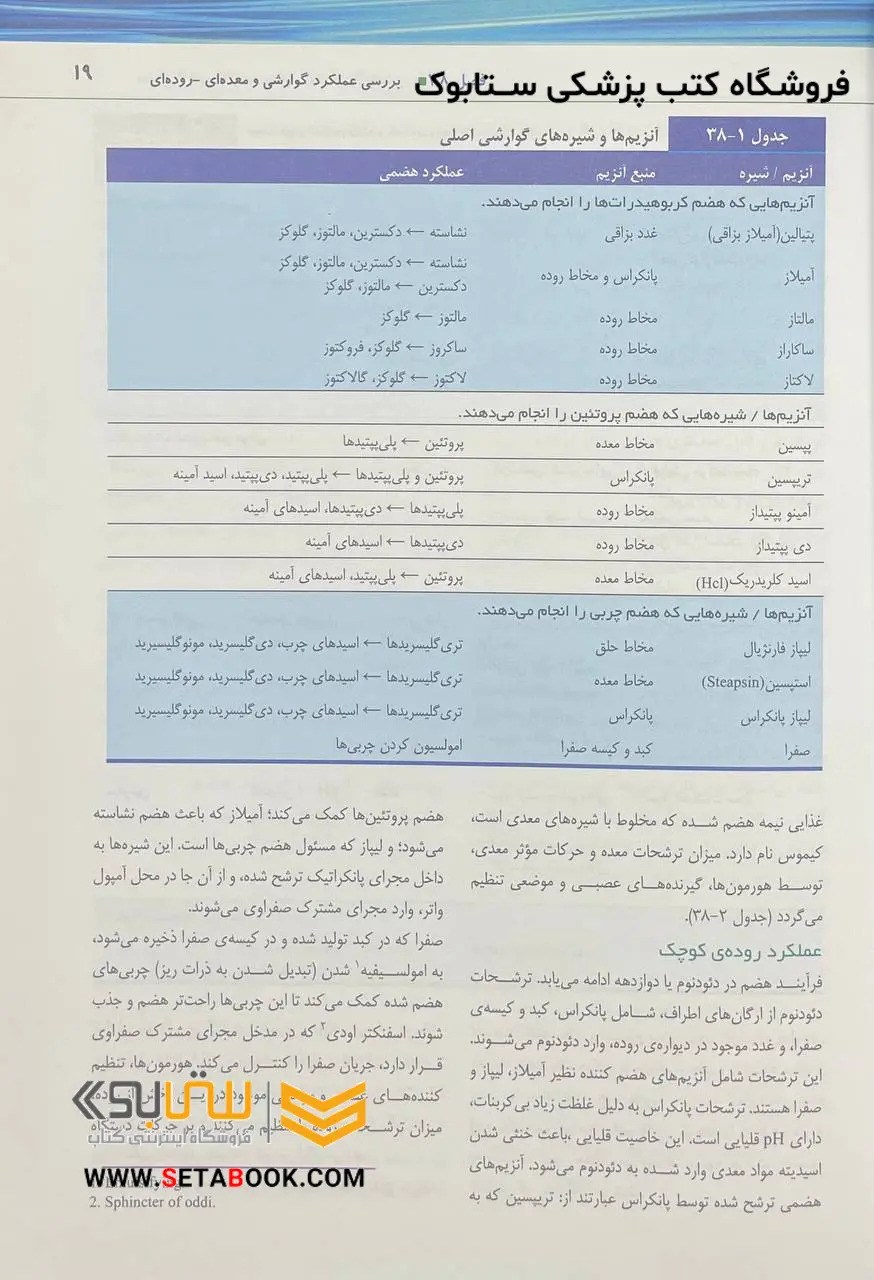 فروشگاه کتب پزشکی ستابوک
بررسی عملکرد گوارشی و معده‌ای -روده‌ای
۱۹
جدول ۱-۳۸
آنزیم‌ها و شیره‌های گوارشی اصلی
آنزیم / شیره منبع آنزیم عملکرد هضمی
آنزیم‌هایی که هضم کربوهیدرات‌ها را انجام می‌دهند.
پتیالین(آمیلاز بزاقی) غدد بزاقی نشاسته ← دکسترین، مالتوز، گلوکز
آمیلاز پانکراس و مخاط روده نشاسته ← دکسترین، مالتوز، گلوکز
دکسترین ← مالتوز، گلوکز
مالتاز مخاط روده مالتوز ← گلوکز
ساکاراز مخاط روده ساکروز ← گلوکز، فروکتوز
لاکتاز مخاط روده لاکتوز ← گلوکز، گالاکتوز
آنزیم‌ها / شیره‌هایی که هضم پروتئین را انجام می‌دهند.
پپسین مخاط معده پروتئین ← پلی‌پپتیدها
تریپسین پانکراس پروتئین و پلی‌پپتیدها ← پلی‌پپتید، دی‌پپتید، اسید آمینه
آمینو پپتیداز مخاط روده پلی‌پپتیدها ← دی‌پپتیدها، اسیدهای آمینه
دی پپتیداز مخاط روده دی‌پپتیدها ← اسیدهای آمینه
اسید کلریدریک(Hcl) مخاط معده پروتئین ← پلی‌پپتید، اسیدهای آمینه
آنزیم‌ها / شیره‌هایی که هضم چربی را انجام می‌دهند.
لیپاز فارنژیال مخاط حلق تری‌گلیسریدها ← اسیدهای چرب، دی‌گلیسرید، مونوگلیسیرید
استپسین(Steapsin) مخاط معده تری‌گلیسریدها ← اسیدهای چرب، دی‌گلیسرید، مونوگلیسیرید
لیپاز پانکراس پانکراس تری‌گلیسریدها ← اسیدهای چرب، دی‌گلیسرید، مونوگلیسیرید
صفرا کبد و کیسه صفرا امولسیون کردن چربی‌ها
غذایی نیمه هضم شده که مخلوط با شیره‌های معدی است،
کیموس نام دارد. میزان ترشحات معده و حرکات مؤثر معدی،
توسط هورمون‌ها، گیرنده‌های عصبی و موضعی تنظیم
می‌گردد (جدول ۲-۳۸).
عملکرد روده‌ی کوچک
فرآیند هضم در دئودنوم یا دوازدهه ادامه می‌یابد. ترشحات
دئودنوم از ارگان‌های اطراف، شامل پانکراس، کبد و کیسه‌ی
صفرا، و غدد موجود در دیواره‌ی روده، وارد دئودنوم می‌شوند.
این ترشحات شامل آنزیم‌های هضم کننده نظیر آمیلاز، لیپاز و
صفرا هستند. ترشحات پانکراس به دلیل غلظت زیاد بی‌کربنات،
دارای pH قلیایی است. این خاصیت قلیایی ،باعث خنثی شدن
اسیدیته مواد معدی وارد شده به دئودنوم می‌شود. آنزیم‌های
هضمی ترشح شده توسط پانکراس عبارتند از: تریپسین که به
هضم پروتئین‌ها کمک می‌کند؛ آمیلاز که باعث هضم نشاسته
می‌شود؛ و لیپاز که مسئول هضم چربی‌ها است. این شیره‌ها به
داخل مجرای پانکراتیک ترشح شده، و از آن جا در محل آمپول
واتر، وارد مجرای مشترک صفراوی می‌شوند.
صفرا که در کبد تولید شده و در کیسه‌ی صفرا ذخیره می‌شود،
به امولسیفیه۱ شدن (تبدیل شدن به ذرات ریز) چربی‌های
هضم شده کمک می‌کند تا این چربی‌ها راحت‌تر هضم و جذب
شوند. اسفنکتر اودی۲ که در مدخل مجرای مشترک صفراوی
قرار دارد، جریان صفرا را کنترل می‌کند. هورمون‌ها، تنظیم
کننده‌های
میزان
ستابوک
فروشگاه اینترنتی کتاب
WWW.SETABOOK.COM
2. Sphincter of oddi.